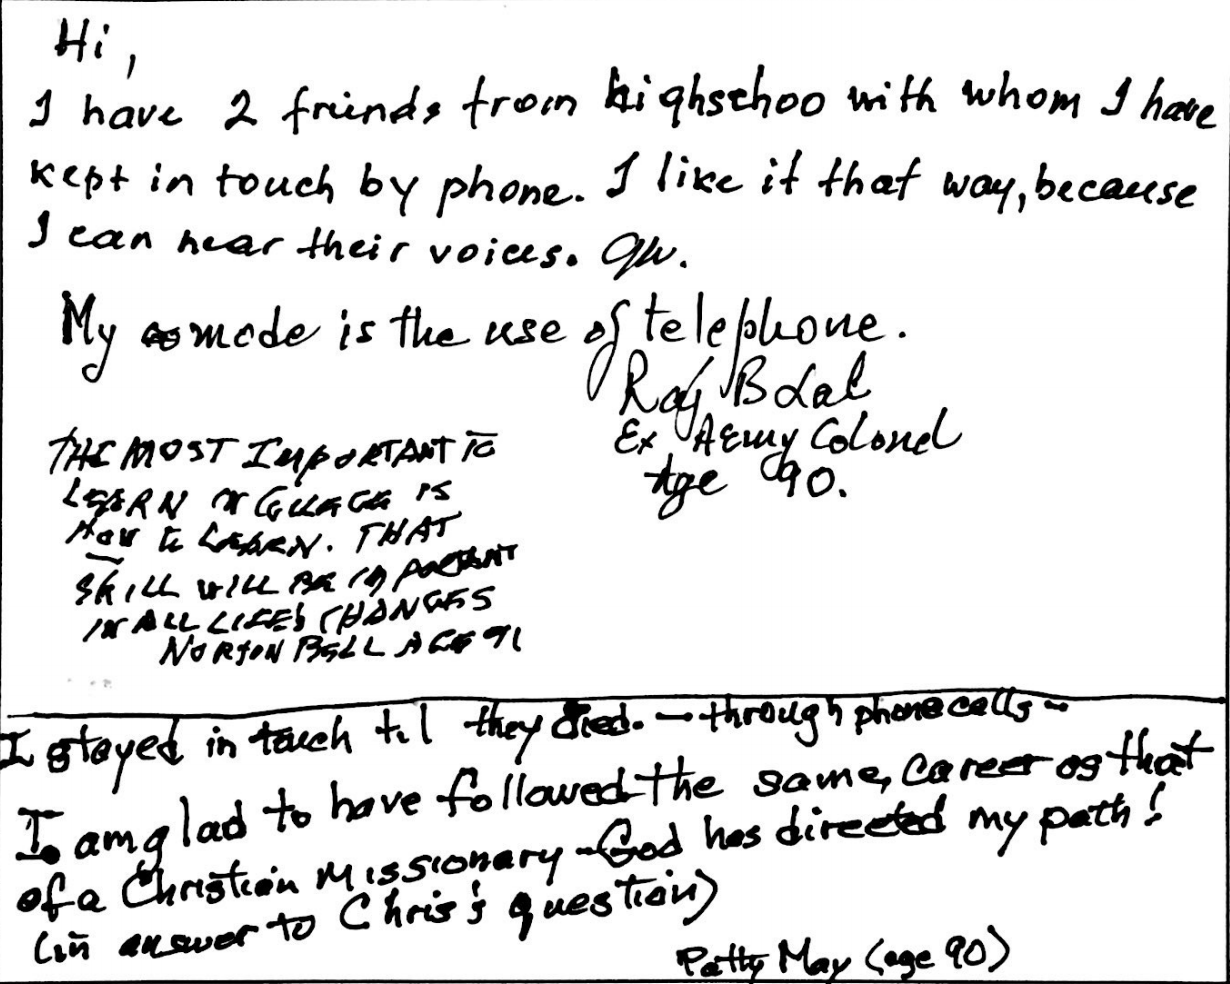 Hi,
I have 2 friends from highschoo with whom I have
kept in touch by phone. I like it that way, because
I can hear their voices.
My mode is the use of telephone.
Raj B Lal
Ex Army Colonel
Age 90.
THE MOST IMPORTANT TO
LEARN IS
HOW TO LEARN. THAT
SKILL WILL BE IMPORTANT
IN ALL LIFES CHANGES
NORTON BELL AGE 91
I stayed in touch til they died. — through phone calls —
I am glad to have followed the same career as that
of a Christian Missionary - God has directed my path!
(in answer to Chris's question)
Patty May (age 90)